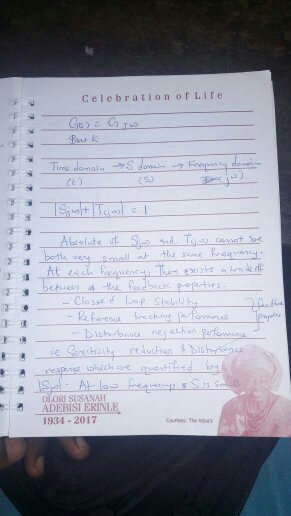 Celebration of Life
G(s) = G jω
But K
Time domain → S domain → Frequency domain
(t) (s) (jω)
|S(jω)| + |T(jω)| = 1
Absolute of S(jω) and T(jω) cannot be
both very small at the same frequency.
At each frequency, There exists a tradeoff
between of the feedback properties.
- Closed loop Stability
- Reference tracking performance
- Disturbance rejection performance
ie Sensitivity reduction & Disturbance
response which are quantified by
|S(jω)|. At low frequency S is small
OLORI SUSANAH
ADEBISI ERINLE
1934 - 2017
Courtesy: The Abba's